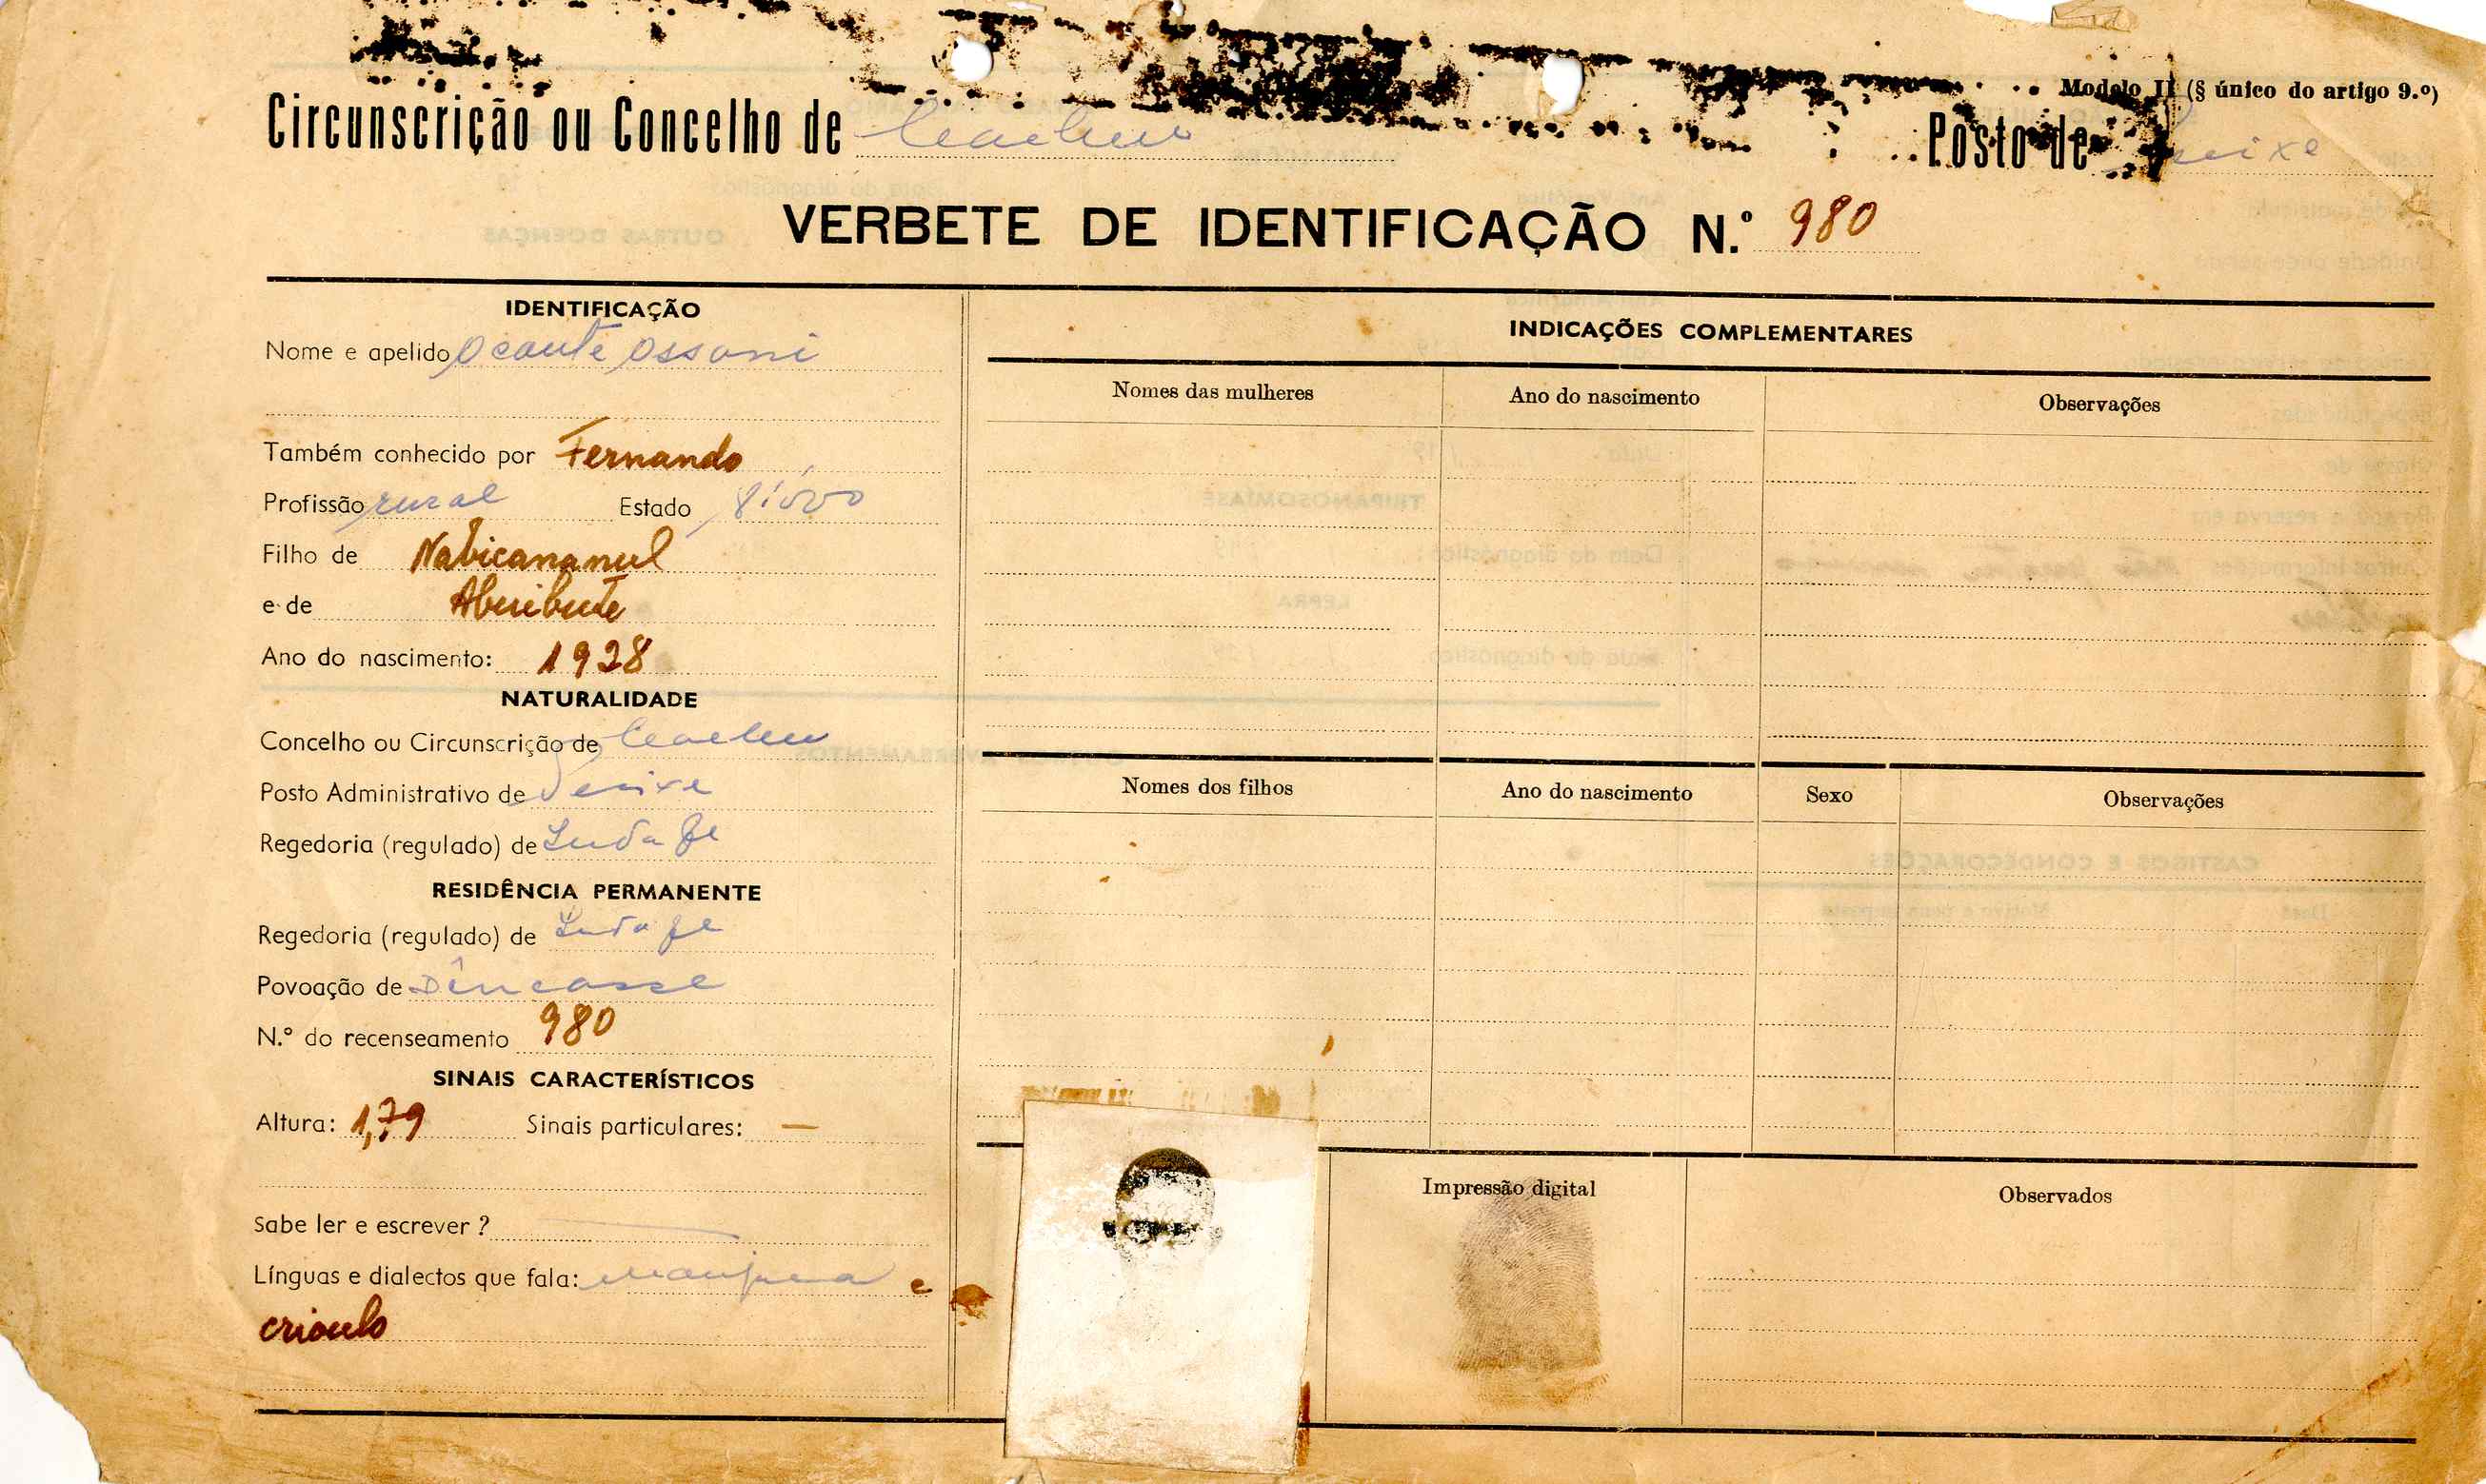 Modelo II (§ único do artigo 9.º)
Circunscrição ou Concelho de Cacheu Posto de
VERBETE DE IDENTIFICAÇÃO N.º 980
IDENTIFICAÇÃO
Nome e apelido Ocante Ossoni
Também conhecido por Fernando
Profissão rural Estado
Filho de Nabicananul
e de Aburibute
Ano do nascimento: 1928
NATURALIDADE
Concelho ou Circunscrição de Cacheu
Posto Administrativo de
Regedoria (regulado) de
RESIDÊNCIA PERMANENTE
Regedoria (regulado) de
Povoação de
N.º do recenseamento 980
SINAIS CARACTERÍSTICOS
Altura: 1,79 Sinais particulares: —
Sabe ler e escrever ?
Línguas e dialectos que fala: manjaca e
crioulo
INDICAÇÕES COMPLEMENTARES
Nomes das mulheres Ano do nascimento Observações
Nomes dos filhos Ano do nascimento Sexo Observações
Impressão digital Observados